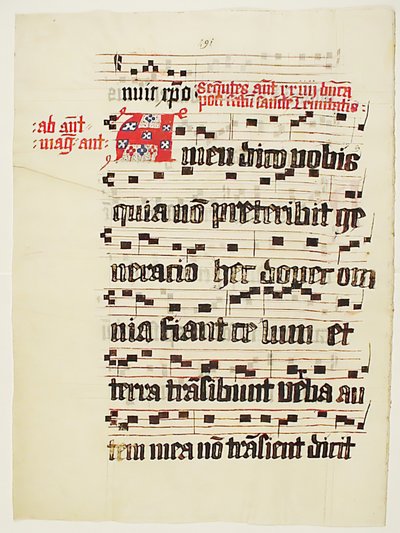 nuit xpō Seqūtes añt xxiiij dnīca
post festū sancte Trinitatis
ad añt
mag añt
Amen dico vobis
quia nō preteribit ge
neracio hec donec om
nia fiant ce lum et
terra trāsibunt v̄ba au
tem mea nō trāsient dicit